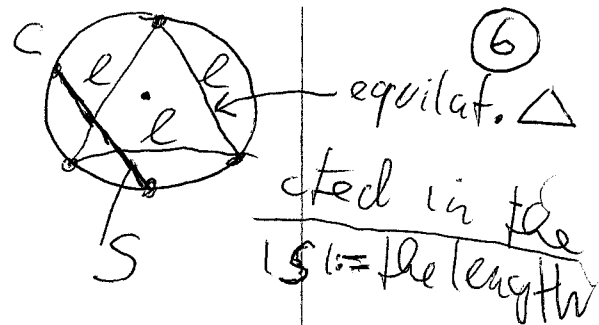 6
C
l
l
equilat. △
l
cted in the
S
|S|:= the length